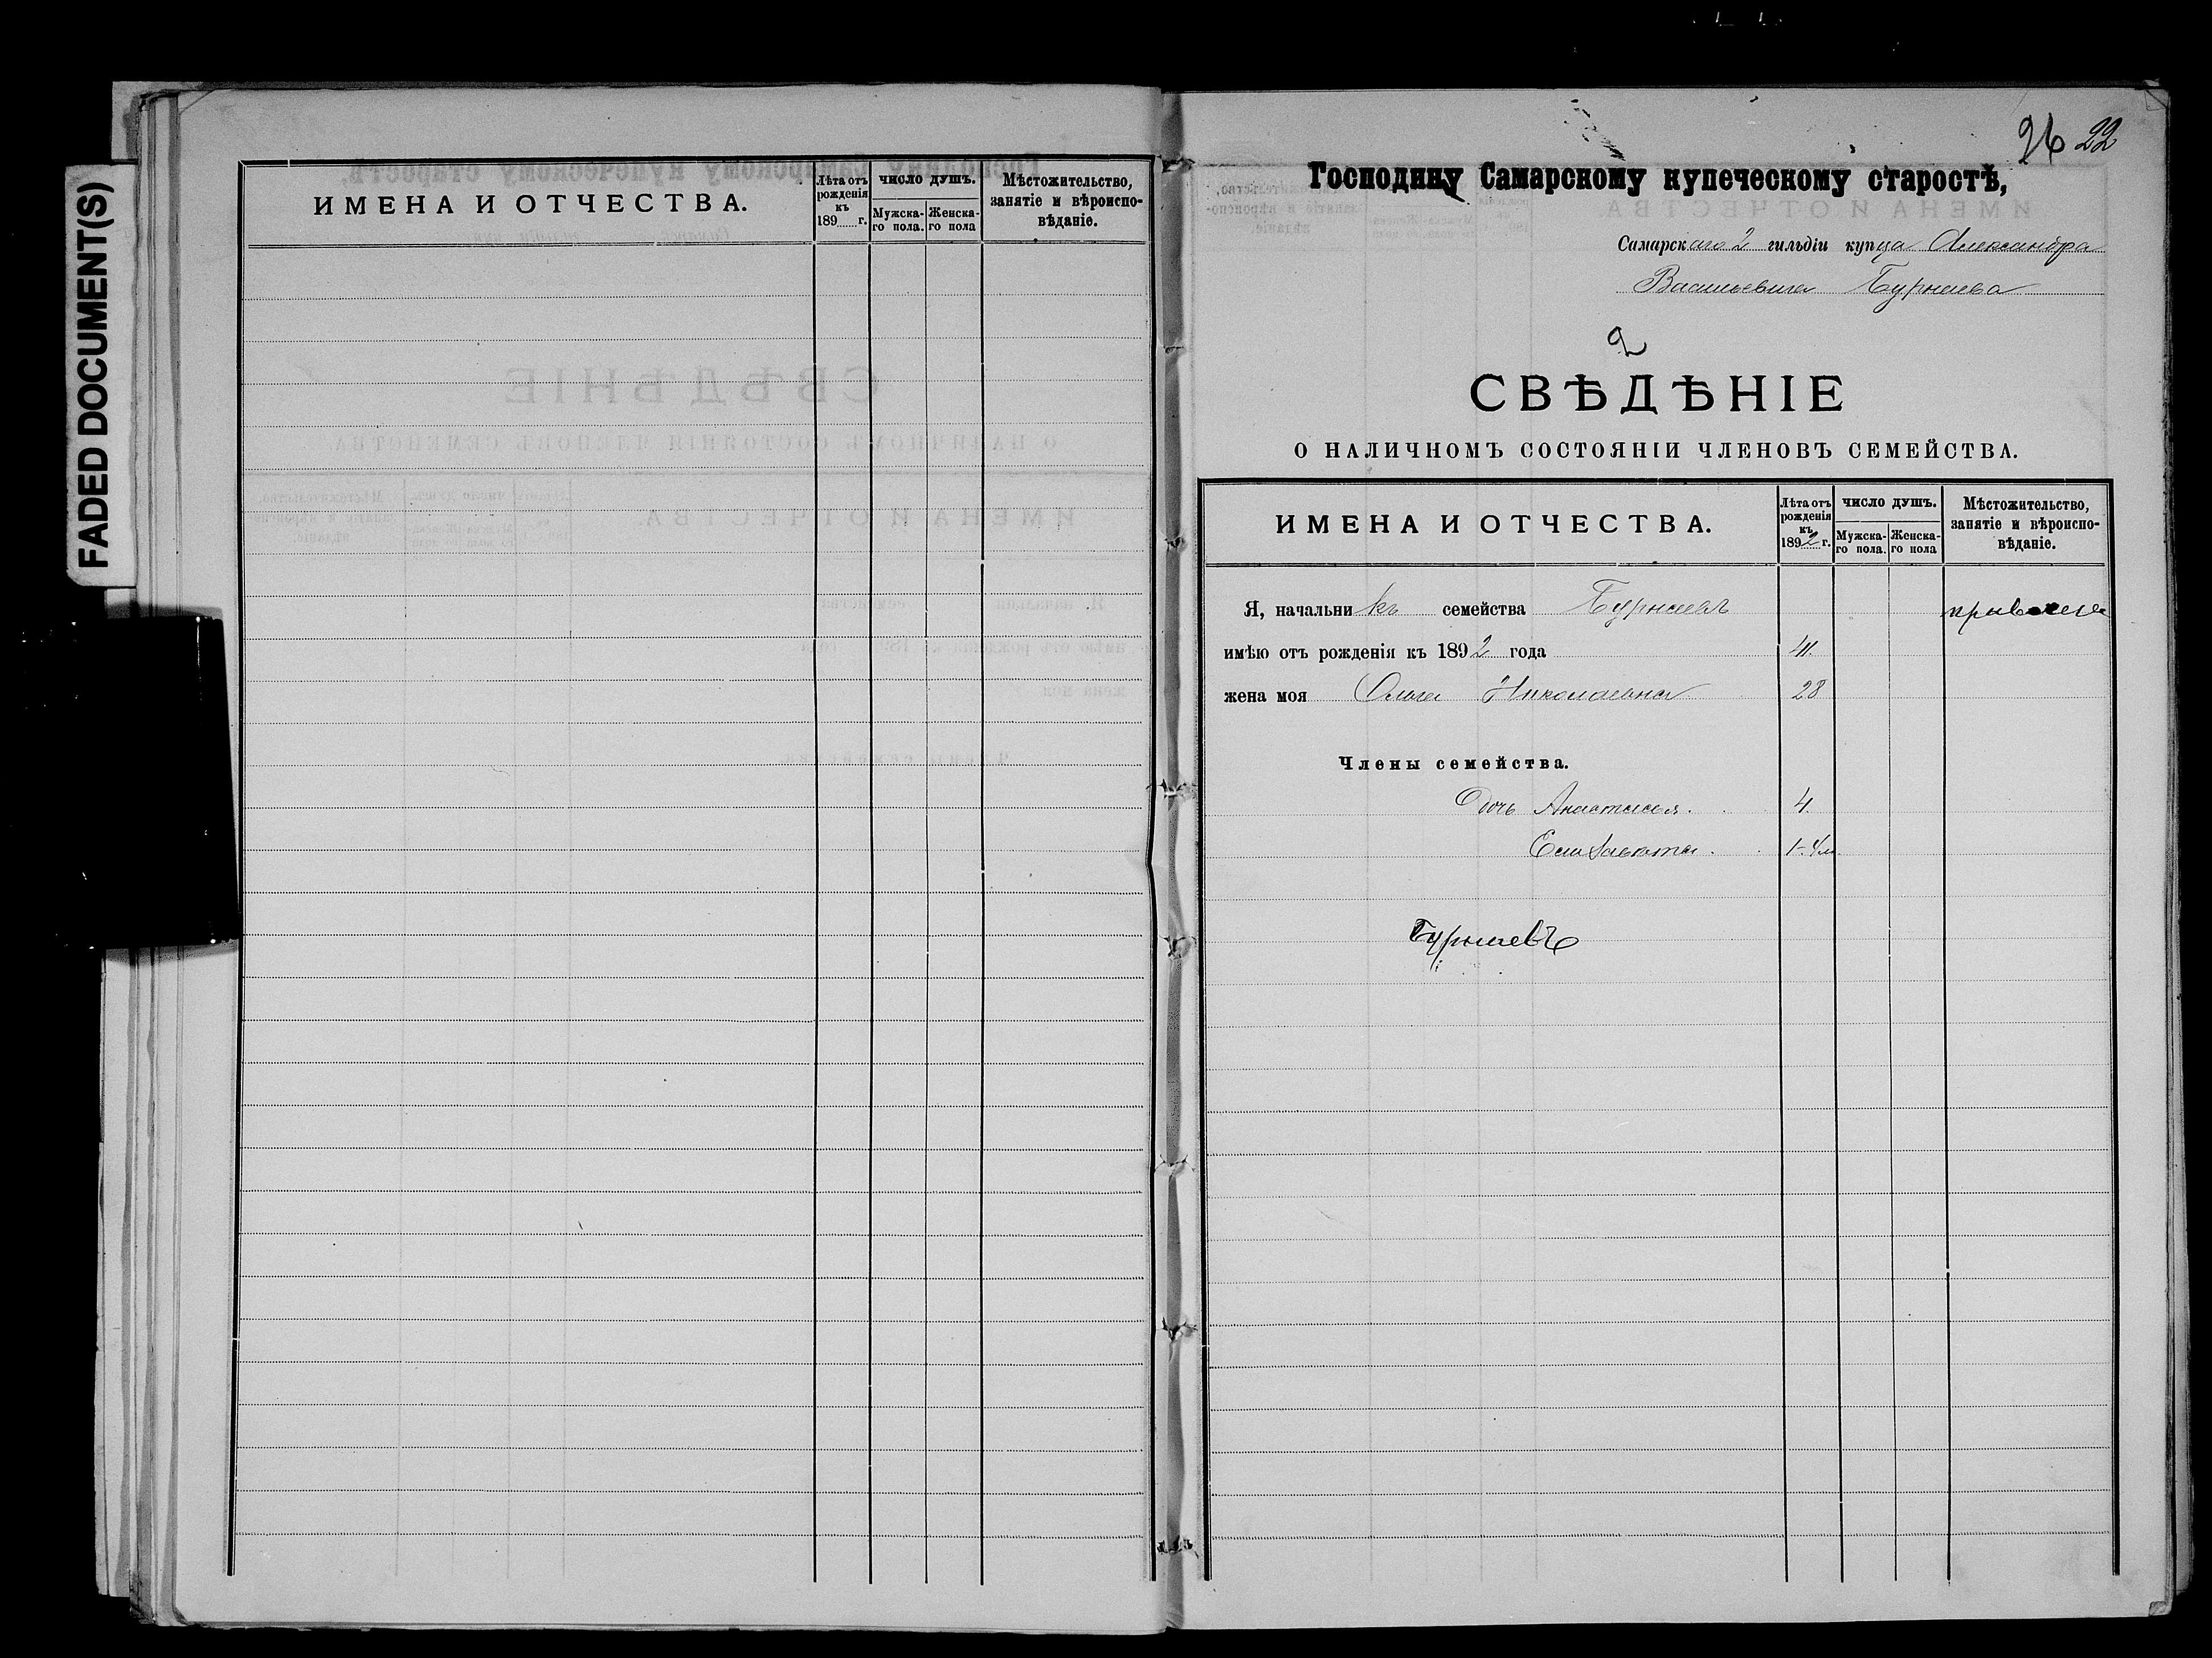 FADED DOCUMENT(S)
ИМЕНА И ОТЧЕСТВА.
Лѣта отъ рожденія къ 189 г.
число душъ.
Мужска-го пола.
Женска-го пола
Мѣстожительство, занятіе и вѣроиспо-вѣданіе.
26 22
Господину Самарскому купеческому старостѣ,
Самарскаго 2 гильдіи купца Александра
Васильевича Бурнаева
2
СВѢДѢНІЕ
О НАЛИЧНОМЪ СОСТОЯНІИ ЧЛЕНОВЪ СЕМЕЙСТВА.
ИМЕНА И ОТЧЕСТВА.
Лѣта отъ рожденія къ 1892 г.
число душъ.
Мужска-го пола.
Женска-го пола
Мѣстожительство, занятіе и вѣроиспо-вѣданіе.
Я, начальникъ семейства Бурнаевъ
имѣю отъ рожденія къ 1892 года 41.
жена моя Ольга Николаевна 28
Члены семейства.
Дочь Анастасия. 4.
Елизавета. 1-4м.
Бурнаевъ